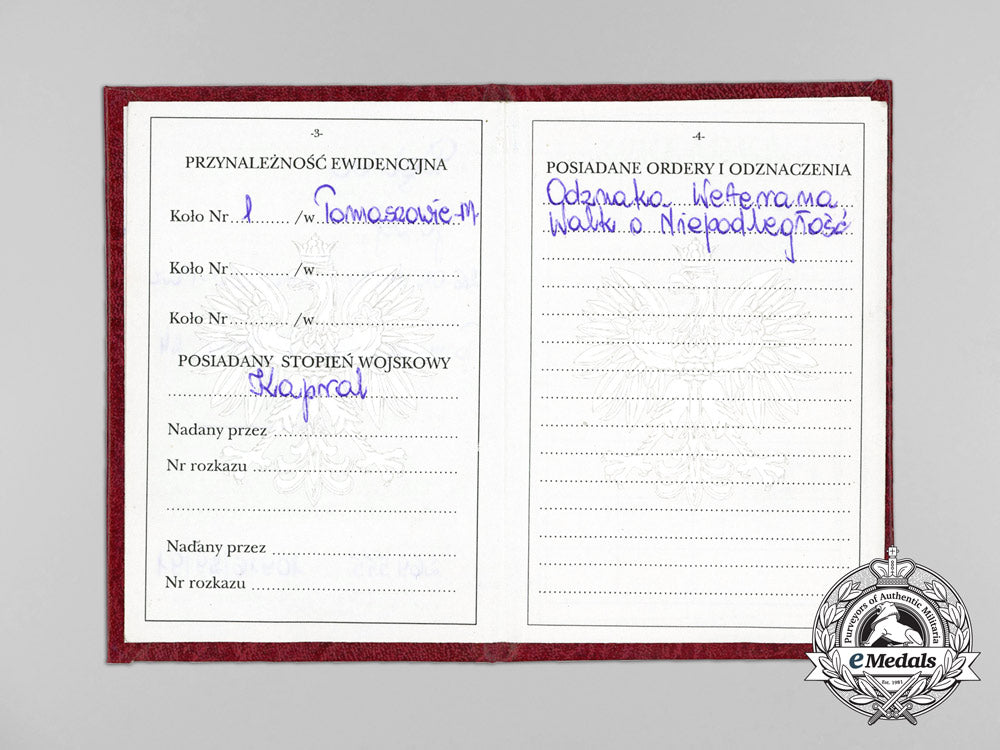 -3-
PRZYNALEŻNOŚĆ EWIDENCYJNA
Koło Nr 1 /w Tomaszowie-M
Koło Nr /w
Koło Nr /w
POSIADANY STOPIEŃ WOJSKOWY
Kapral
Nadany przez
Nr rozkazu
Nadany przez
Nr rozkazu
-4-
POSIADANE ORDERY I ODZNACZENIA
Odznaka Weterana
Walk o Niepodległość
Purveyors of Authentic Militaria
eMedals
Est. 1981